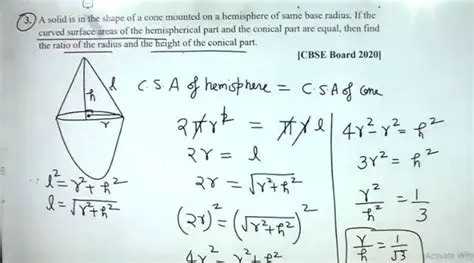 3. A solid is in the shape of a cone mounted on a hemisphere of same base radius. If the
curved surface areas of the hemispherical part and the conical part are equal, then find
the ratio of the radius and the height of the conical part.
[CBSE Board 2020]
l
h
r
C.S.A of hemisphere = C.S.A of cone
2πr² = πrl
2r = l
2r = √r²+h²
(2r)² = (√r²+h²)²
4r² = r²+h²
l² = r²+h²
l = √r²+h²
4r²-r² = h²
3r² = h²
r²/h² = 1/3
r/h = 1/√3
Activate Win